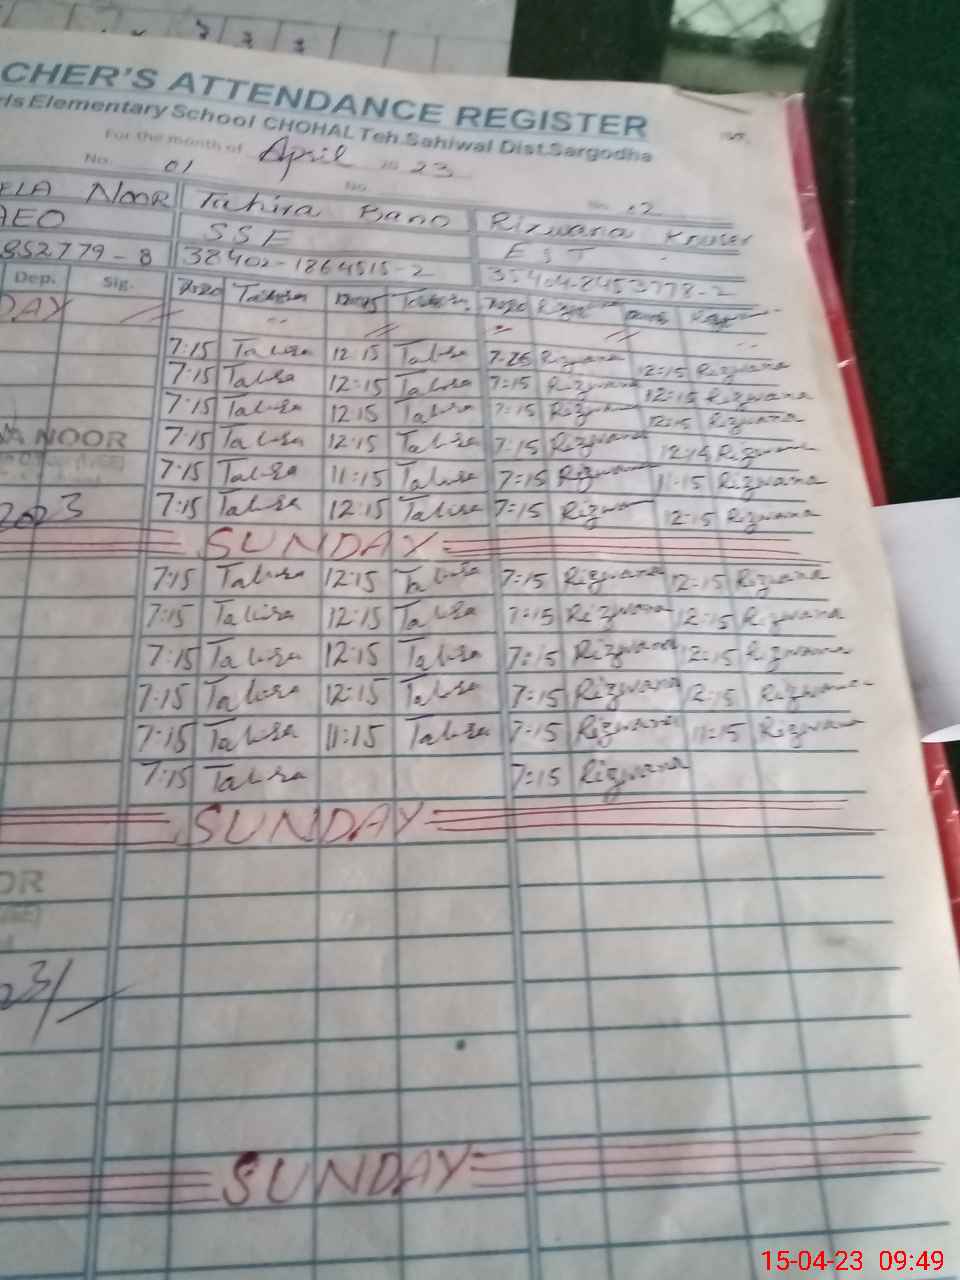 CHER'S ATTENDANCE REGISTER
rls Elementary School CHOHAL Teh.Sahiwal Dist.Sargodha
For the month of April 23
No. 01 No. No. 02
ELA NOOR Tahira Bano Rizwana
AEO SSE EST
852779-8 38402-1864515-2
Dep. Sig.
DAY
7:15 Tahira 12:15 Tahira 7:25 Rizwana 12:15 Rizwana
7:15 Tahira 12:15 Tahira 7:15 Rizwana 12:15 Rizwana
7:15 Tahira 12:15 Tahira 7:15 Rizwana 12:15 Rizwana
NOOR 7:15 Tahira 12:15 Tahira 7:15 Rizwana 12:15 Rizwana
7:15 Tahira 11:15 Tahira 7:15 Rizwana 11:15 Rizwana
2023 7:15 Tahira 12:15 Tahira 7:15 Rizwana 12:15 Rizwana
SUNDAY
7:15 Tahira 12:15 Tahira 7:15 Rizwana 12:15 Rizwana
7:15 Tahira 12:15 Tahira 7:15 Rizwana 12:15 Rizwana
7:15 Tahira 12:15 Tahira 7:15 Rizwana 12:15 Rizwana
7:15 Tahira 12:15 Tahira 7:15 Rizwana 12:15 Rizwana
7:15 Tahira 11:15 Tahira 7:15 Rizwana 11:15 Rizwana
7:15 Tahira 7:15 Rizwana
SUNDAY
OR
SUNDAY
15-04-23 09:49